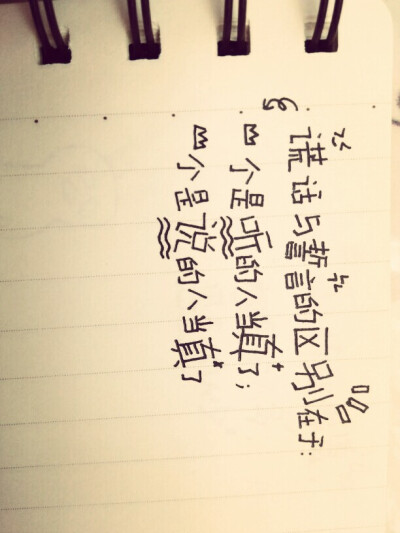 谎话与誓言的区别在于：
一个是听的人当真了；
一个是说的人当真了